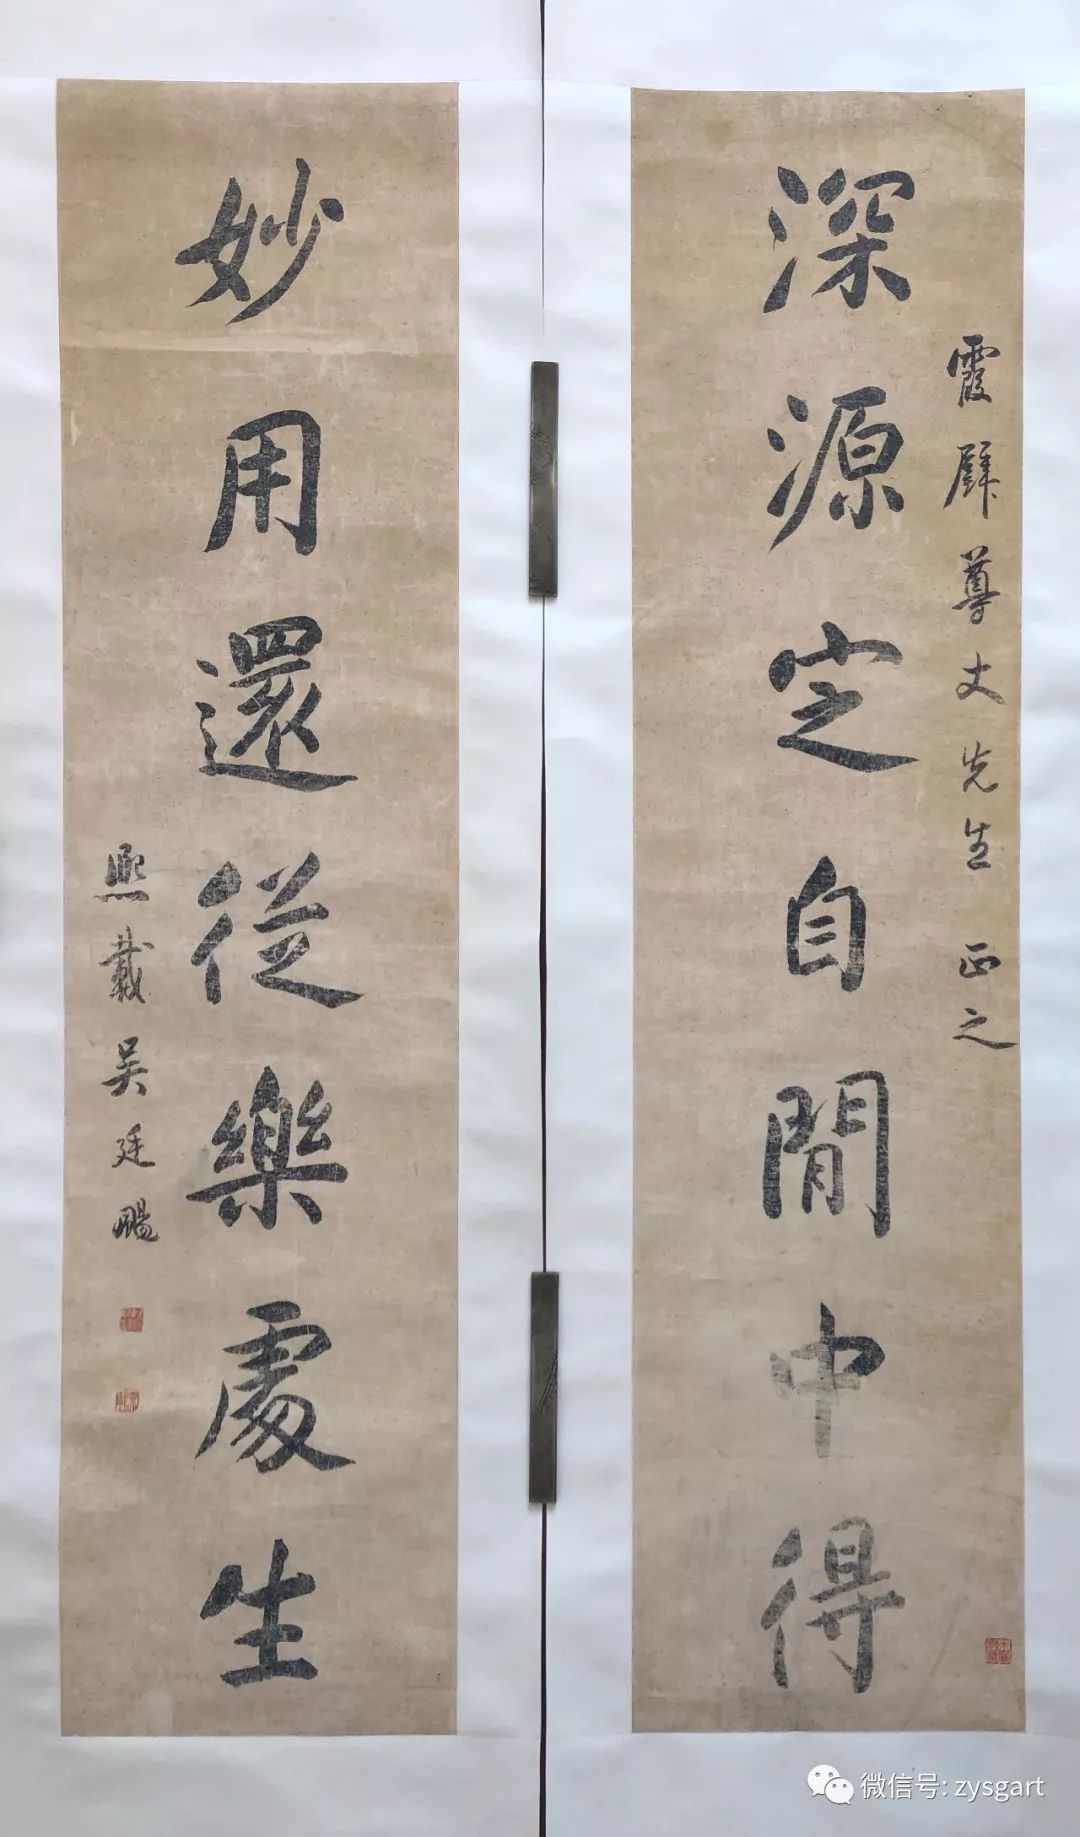 深源定自閒中得
霞屛尊丈先生正之
妙用還從樂處生
熙載吳廷颺
微信号: zysgart